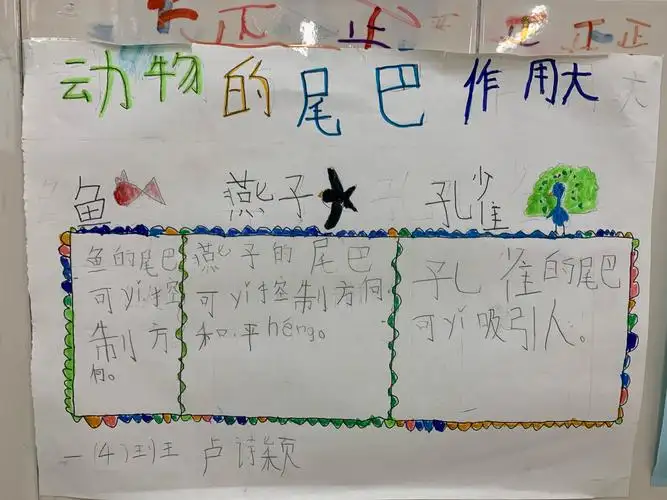 正 止 正 正 正
动物的尾巴作用大
鱼 燕子 孔雀
鱼的尾巴
可yi控
制方
向。
燕子的尾巴
可yi控制方向
和平héng。
孔雀的尾巴
可yi吸引人。
一(4)班 卢诗颖